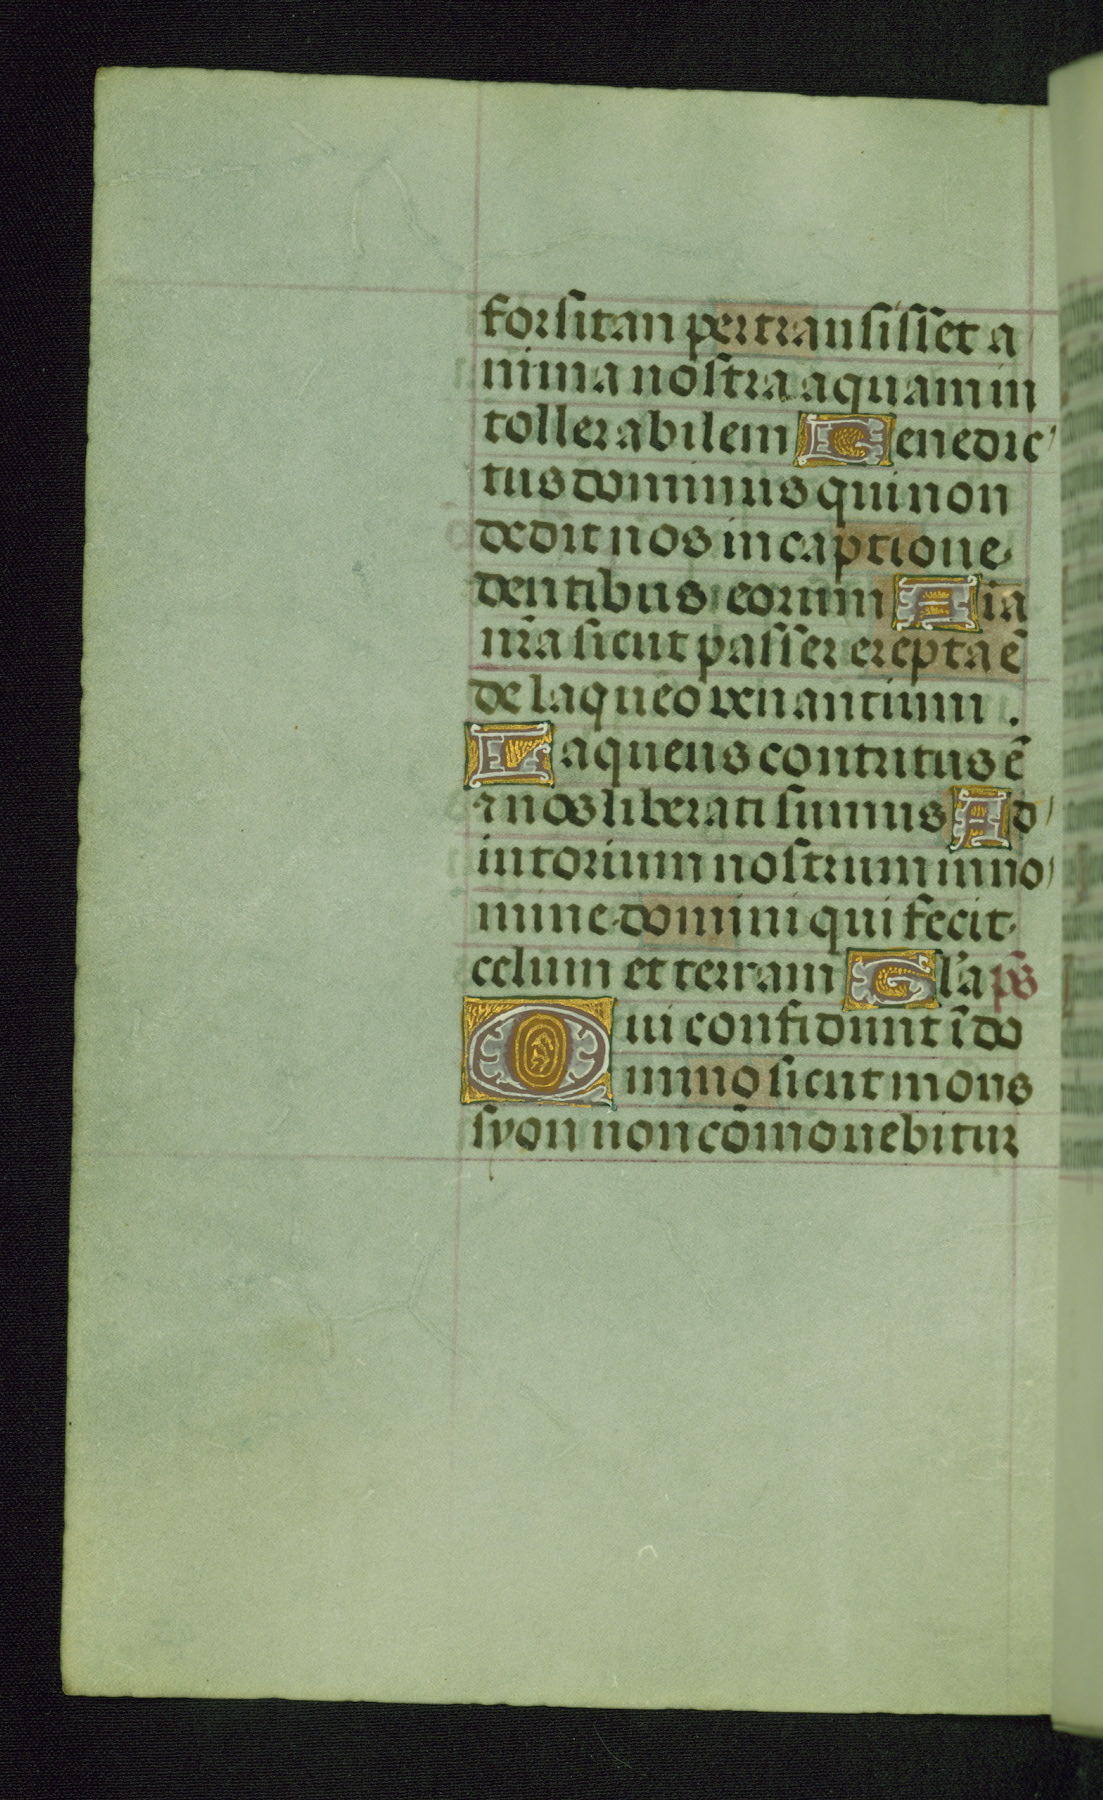 forsitan pertransisset a
nima nostra aquam in
tollerabilem Benedic
tus dominus qui non
dedit nos in captione
dentibus eorum Aīa
nr̄a sicut passer erepta ē
de laqueo venantium .
Laqueus contritus ē
& nos liberati sumus Ad
iutorium nostrum in no
mine domini qui fecit
celum et terram Gl̄a ps̄
Qui confidunt ī do
mino sicut mons
syon non cōmouebitur